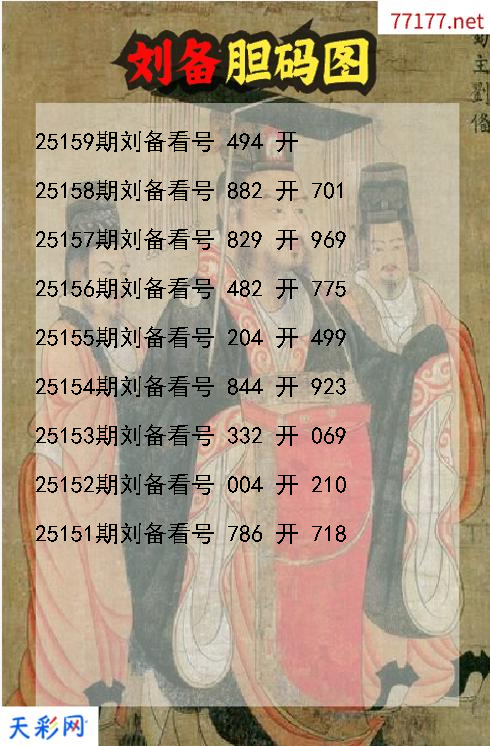 77177.net
蜀主劉備
刘备胆码图
25159期刘备看号 494 开
25158期刘备看号 882 开 701
25157期刘备看号 829 开 969
25156期刘备看号 482 开 775
25155期刘备看号 204 开 499
25154期刘备看号 844 开 923
25153期刘备看号 332 开 069
25152期刘备看号 004 开 210
25151期刘备看号 786 开 718
天彩网